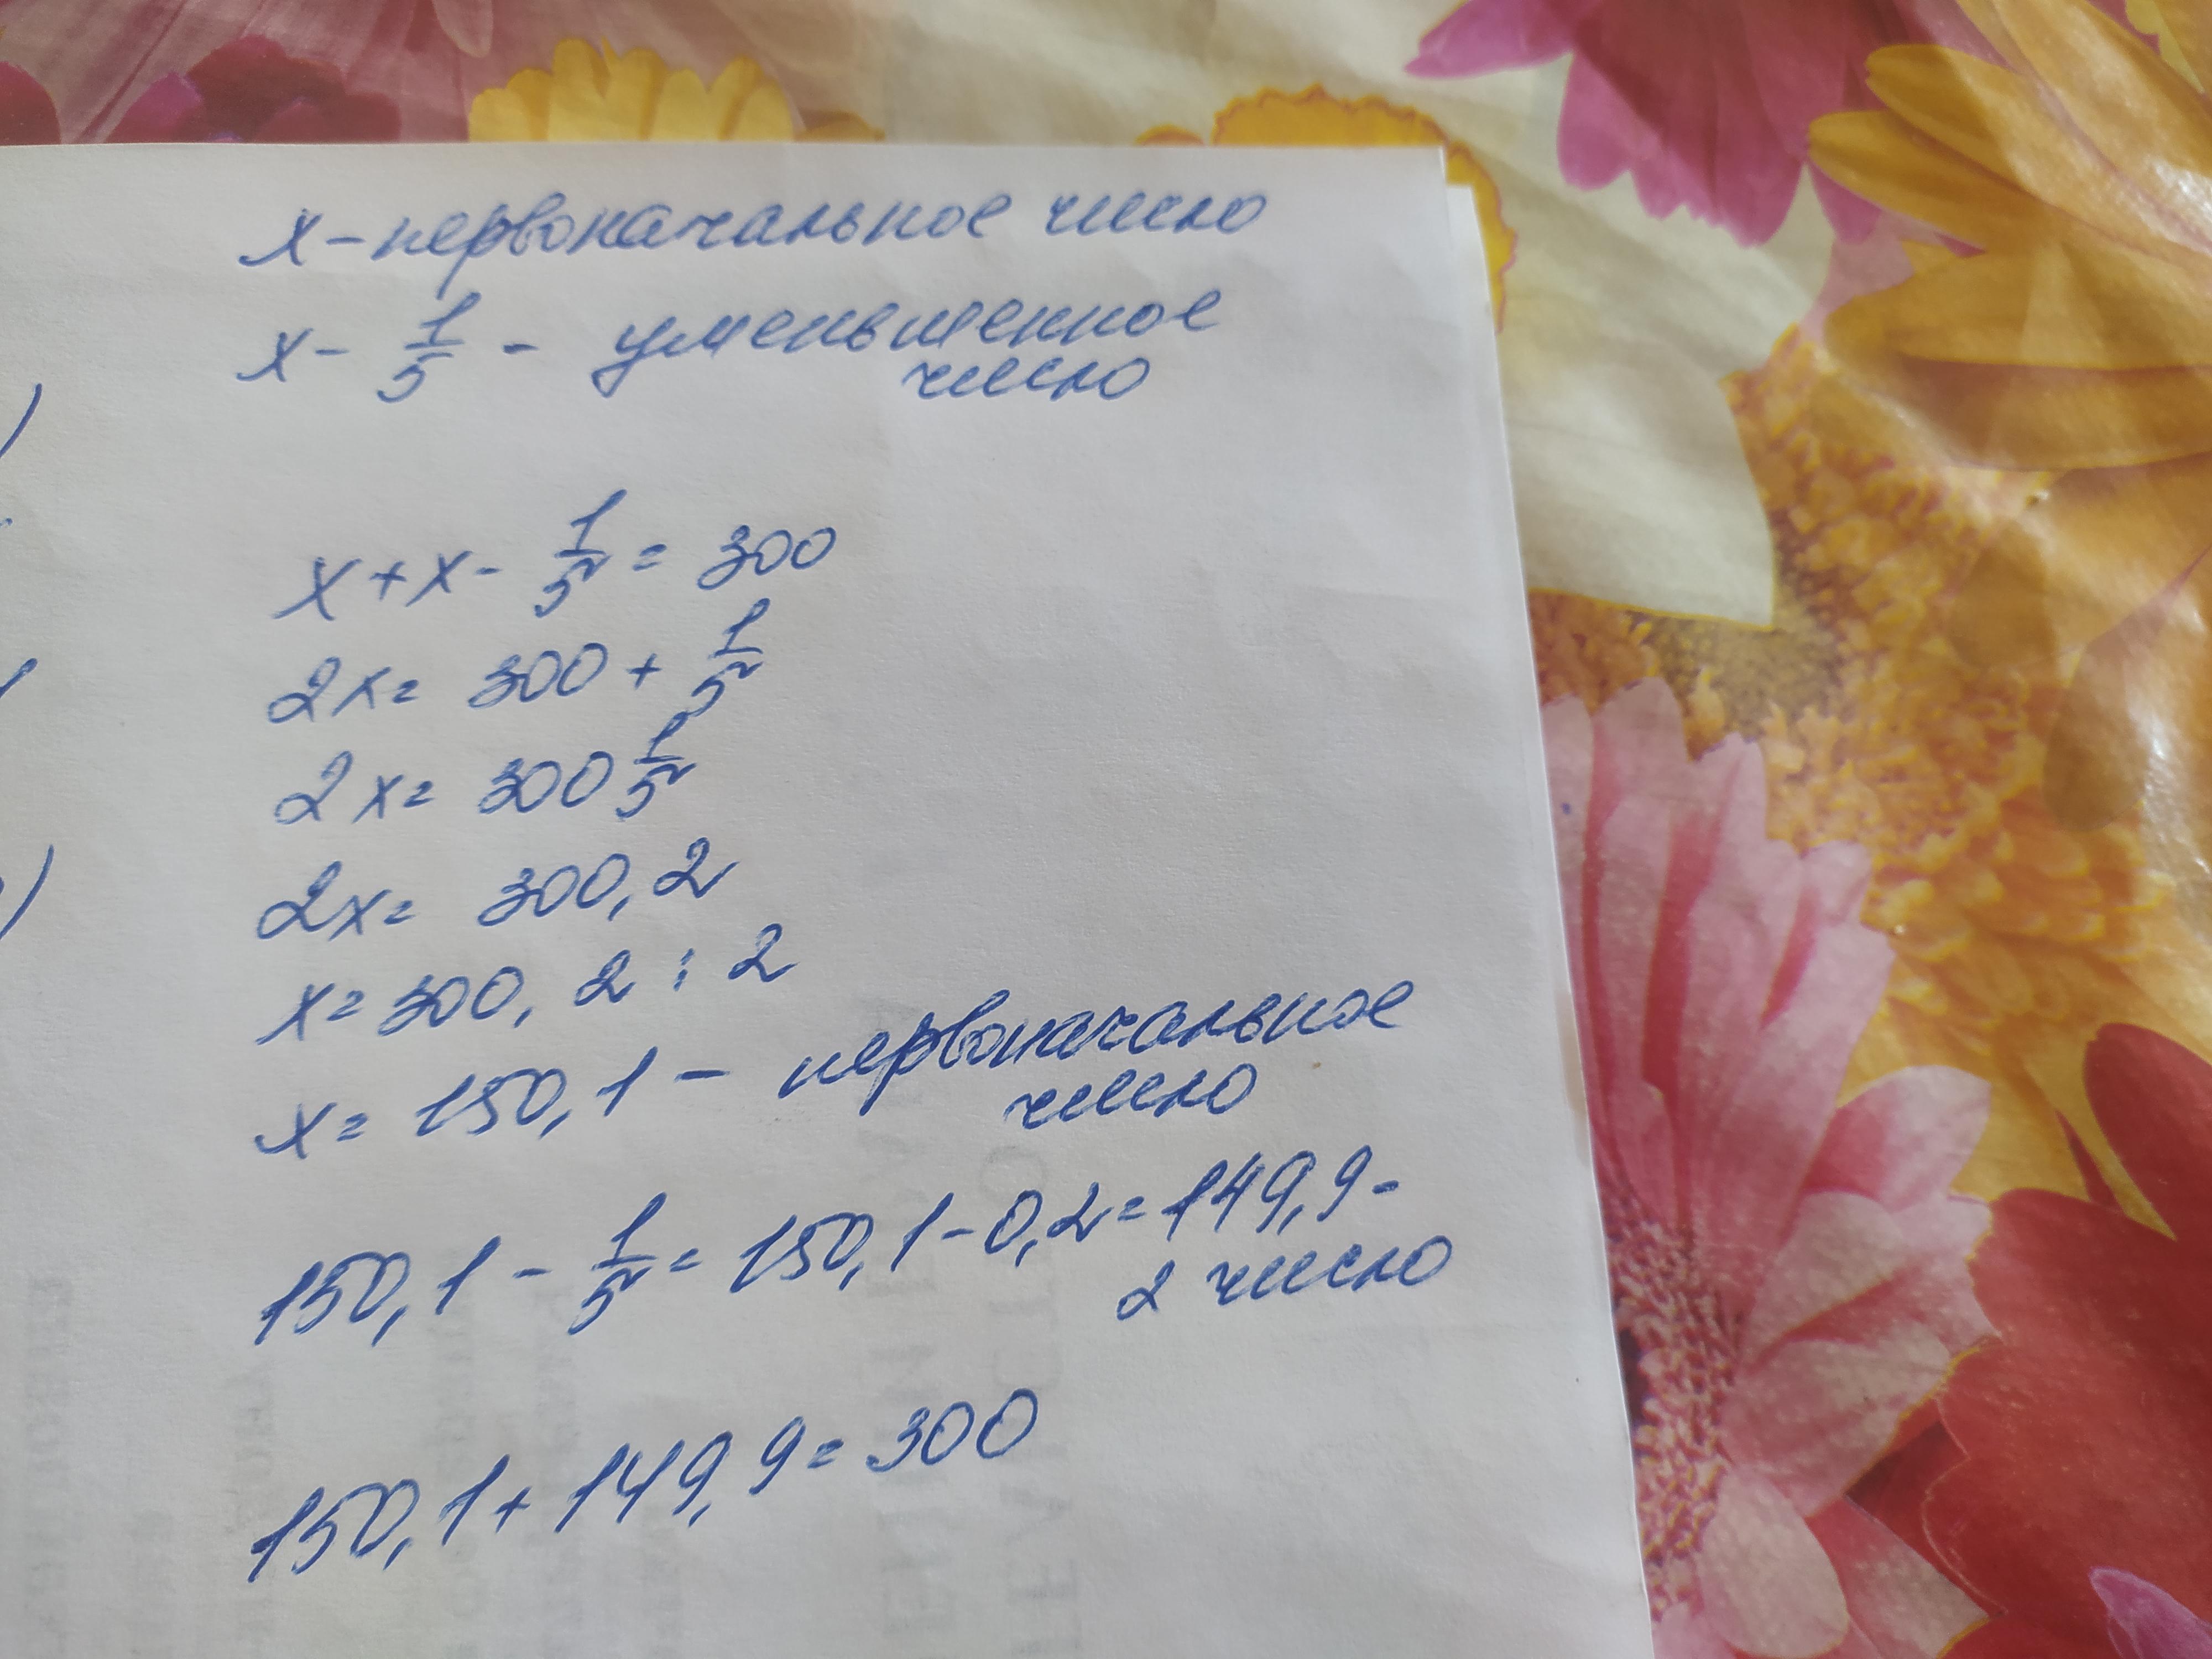 x - первоначальное число
x - 1/5 - уменьшенное
число
x + x - 1/5 = 300
2x = 300 + 1/5
2x = 300 1/5
2x = 300,2
x = 300,2 : 2
x = 150,1 - первоначальное
число
150,1 - 1/5 = 150,1 - 0,2 = 149,9 -
2 число
150,1 + 149,9 = 300